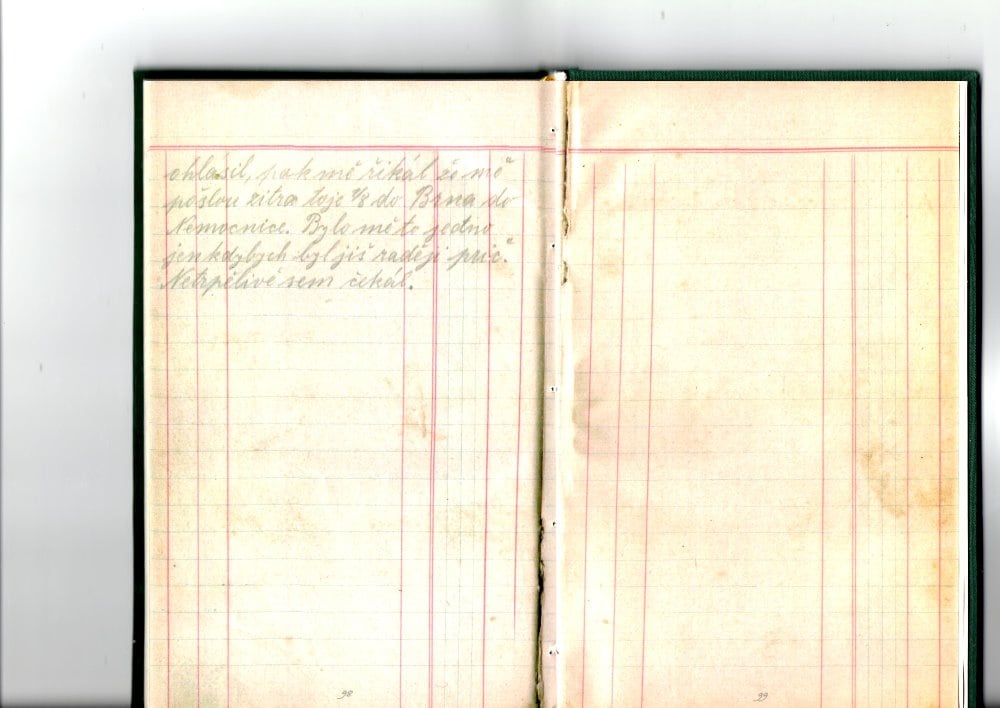 ohlásil, pak mě řikál že mě
pošlou zitra tojo 7/8 do Brna do
Nemocnice. Bylo mě to jedno
jen kdybych byl jiš raději prič.
Netrpělivě sem čekál.
98
99